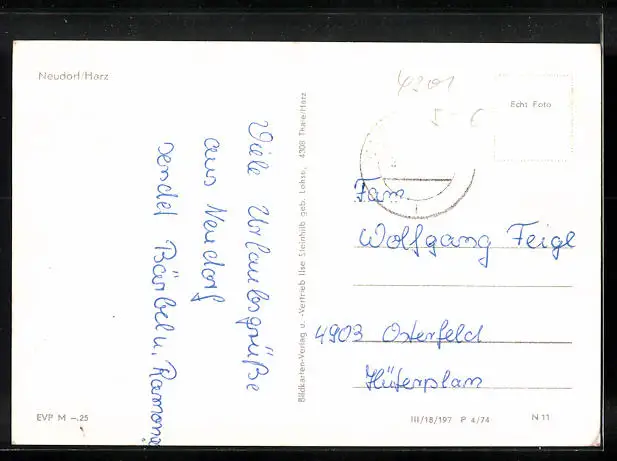 Neudorf/Harz
Viele Urlaubsgrüße
aus Neudorf
sendet Bärbel u. Ramona
EVP M –.25
Bildkarten-Verlag u. -Vertrieb Ilse Steinhilb geb. Lohse, 4308 Thale/Harz
4301
Echt Foto
Fam
Wolfgang Feigl
4903 Osterfeld
Hüterplan
III/18/197 P 4/74
N 11